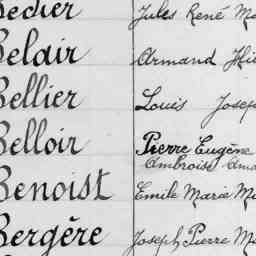 Becher Jules René
Belair Armand
Bellier Louis Joseph
Belloir Pierre Eugène
Ambroise
Benoist Emile Marie
Bergère Joseph Pierre